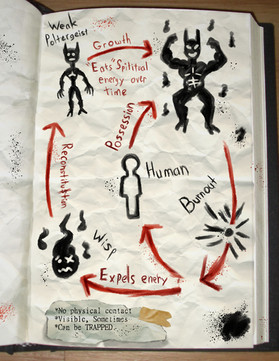 Weak
Poltergeist
Growth
"Eats" Spiritual
energy over
time
Possession
Reconstitution
Human
Burnout
Wisp
Expels enery
*No physical contact
*Visible, Sometimes
*Can be TRAPPED